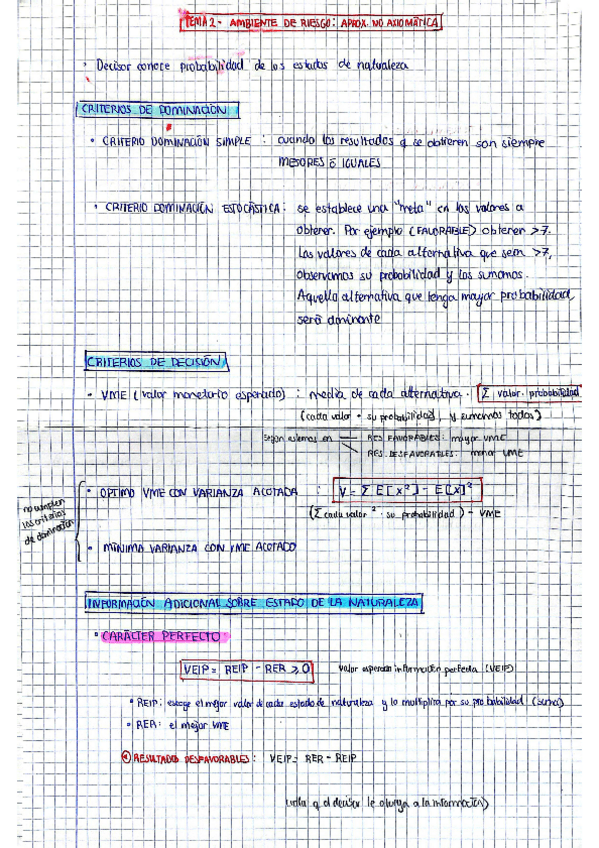 TEMA 2 - AMBIENTE DE RIESGO: APROX. NO AXIOMÁTICA
· Decisor conoce probabilidad de los estados de naturaleza
CRITERIOS DE DOMINACIÓN
• CRITERIO DOMINACIÓN SIMPLE : cuando los resultados q se obtienen son siempre
MEJORES o IGUALES
• CRITERIO DOMINACIÓN ESTOCÁSTICA : se establece una "meta" en los valores a
obtener. Por ejemplo (FAVORABLE) obtener >7.
Los valores de cada alternativa que sean >7,
observamos su probabilidad y los sumamos.
Aquella alternativa que tenga mayor probabilidad,
será dominante
CRITERIOS DE DECISIÓN
• VME (valor monetario esperado) : media de cada alternativa. Σ valor · probabilidad
(cada valor · su probabilidad, y sumamos todas)
según estemos en — RES. FAVORABLES: mayor VME
— RES. DESFAVORABLES: menor VME
no cumplen los criterios de dominación
• OPTIMO VME CON VARIANZA ACOTADA : V = Σ E[X²] - E[X]²
(Σ cada valor² · su probabilidad) - VME
• MÍNIMA VARIANZA CON VME ACOTADO
INFORMACIÓN ADICIONAL SOBRE ESTADO DE LA NATURALEZA
• CARÁCTER PERFECTO
VEIP = REIP - RER ≥ 0 valor esperado información perfecta (VEIP)
• REIP: escoge el mejor valor de cada estado de naturaleza y lo multiplica por su probabilidad (suma)
• RER: el mejor VME
RESULTADOS DESFAVORABLES: VEIP = RER - REIP
q el decisor le otorga a la información)